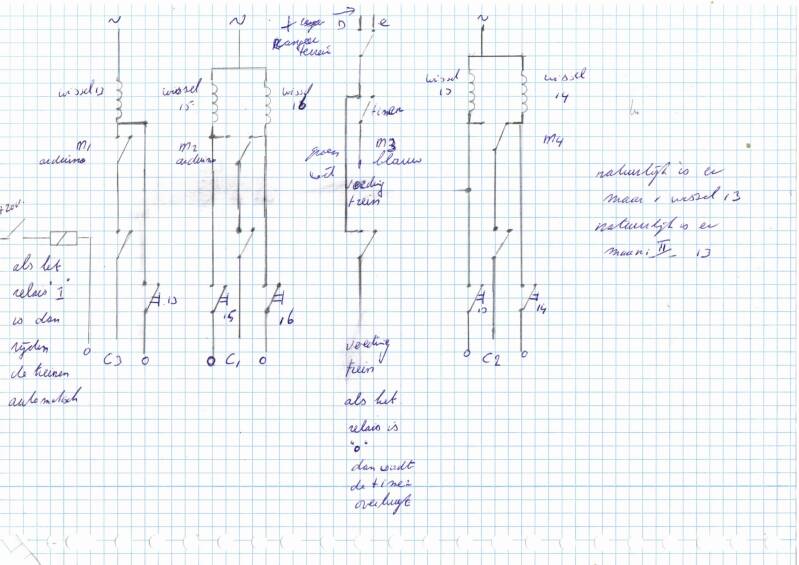 ~
~
+
D
e
~
terrein
wissel 13
wissel
15
wissel
16
timer
wissel
13
wissel
14
M1
arduino
M2
arduino
groen
wit
M3
blauw
M4
voeding
trein
natuurlijk is er
maar 1 wissel 13
natuurlijk is er
maar 1 II 13
+20V.
als het
relais "I"
is dan
rijden
de treinen
automatisch
13
15
16
13
14
0
C3
0
0
C1
0
0
C2
0
voeding
trein
als het
relais is
"0"
dan wordt
de timer
overbrugt